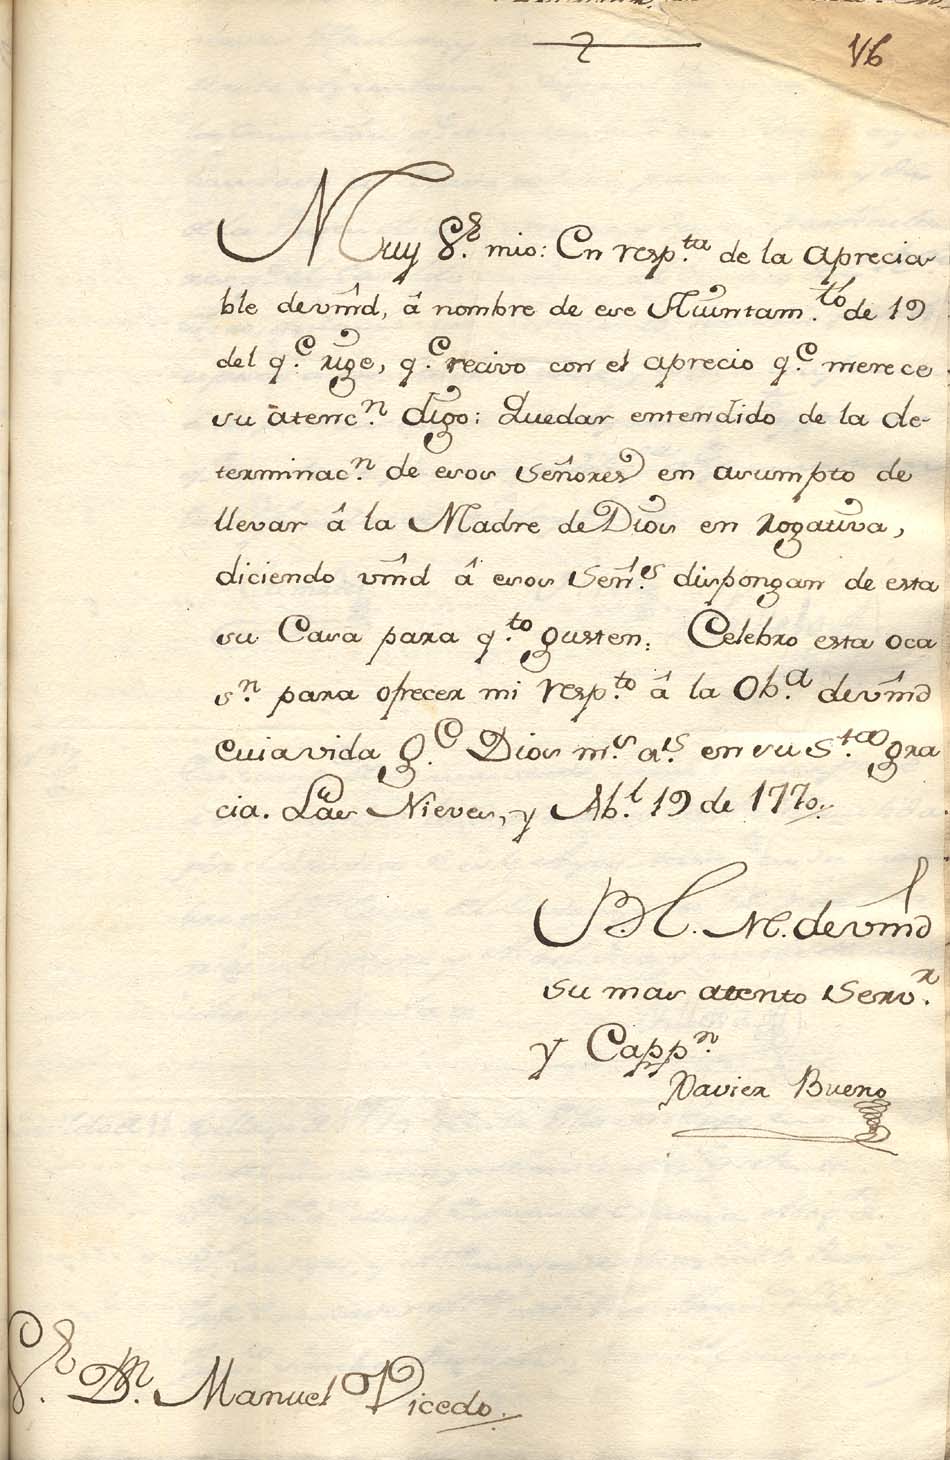 16
Muy S.r mio: En resp.ta de la aprecia
ble de vmd, â nombre de ese Aiuntam.to de 19
del q.e rige, q.e recivo con el aprecio q.e merece
su atenc.n digo: Quedar entendido de la de-
terminac.n de esos Señores en asumpto de
llevar â la Madre de Dios en rogativa,
diciendo vmd â esos Señ.s dispongan de esta
su Casa para q.to gusten: Celebro esta oca
s.n para ofrecer mi resp.to â la Ob.a de vmd
cuia vida g.e Dios m.s a.s en su S.ta gra
cia. Las Nieves, y Ab.l 19 de 1770.
B. L. M. de vmd
su mas atento Serv.r
y Capp.n
Xavier Bueno
S.r D.n Manuel Vicedo.